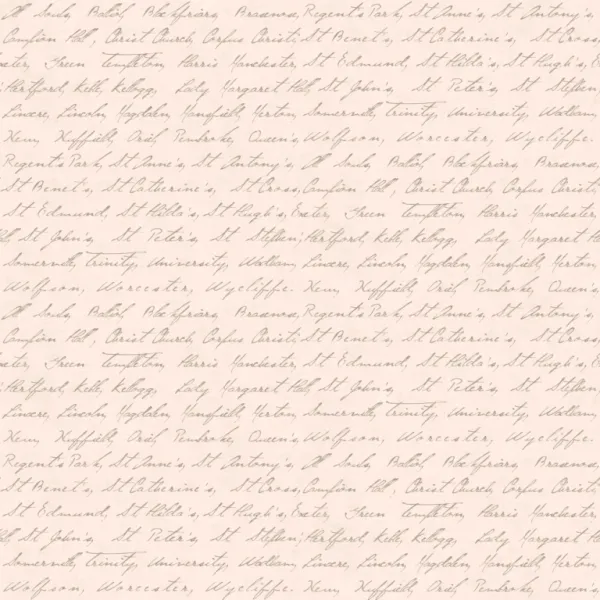 All Souls, Balliol, Blackfriars, Brasenose, Regent's Park, St Anne's, St Antony's,
Campion Hall, Christ Church, Corpus Christi, St Benet's, St Catherine's, St Cross,
Exeter, Green Templeton, Harris Manchester, St Edmund, St Hilda's, St Hugh's,
Hertford, Keble, Kellogg, Lady Margaret Hall, St John's, St Peter's, St Stephen,
Linacre, Lincoln, Magdalen, Mansfield, Merton, Somerville, Trinity, University, Wadham,
New, Nuffield, Oriel, Pembroke, Queen's, Wolfson, Worcester, Wycliffe.
Regent's Park, St Anne's, St Antony's, All Souls, Balliol, Blackfriars, Brasenose,
St Benet's, St Catherine's, St Cross, Campion Hall, Christ Church, Corpus Christi,
St Edmund, St Hilda's, St Hugh's, Exeter, Green Templeton, Harris Manchester,
St John's, St Peter's, St Stephen, Hertford, Keble, Kellogg, Lady Margaret
Somerville, Trinity, University, Wadham, Linacre, Lincoln, Magdalen, Mansfield, Merton
Wolfson, Worcester, Wycliffe. New, Nuffield, Oriel, Pembroke, Queen's,
All Souls, Balliol, Blackfriars, Brasenose, Regent's Park, St Anne's, St Antony's,
Campion Hall, Christ Church, Corpus Christi, St Benet's, St Catherine's, St Cross,
Exeter, Green Templeton, Harris Manchester, St Edmund, St Hilda's, St Hugh's,
Hertford, Keble, Kellogg, Lady Margaret Hall, St John's, St Peter's, St Stephen,
Linacre, Lincoln, Magdalen, Mansfield, Merton, Somerville, Trinity, University, Wadham,
New, Nuffield, Oriel, Pembroke, Queen's, Wolfson, Worcester, Wycliffe.
Regent's Park, St Anne's, St Antony's, All Souls, Balliol, Blackfriars, Brasenose,
St Benet's, St Catherine's, St Cross, Campion Hall, Christ Church, Corpus Christi,
St Edmund, St Hilda's, St Hugh's, Exeter, Green Templeton, Harris Manchester,
St John's, St Peter's, St Stephen, Hertford, Keble, Kellogg, Lady Margaret
Somerville, Trinity, University, Wadham, Linacre, Lincoln, Magdalen, Mansfield, Merton
Wolfson, Worcester, Wycliffe. New, Nuffield, Oriel, Pembroke, Queen's,